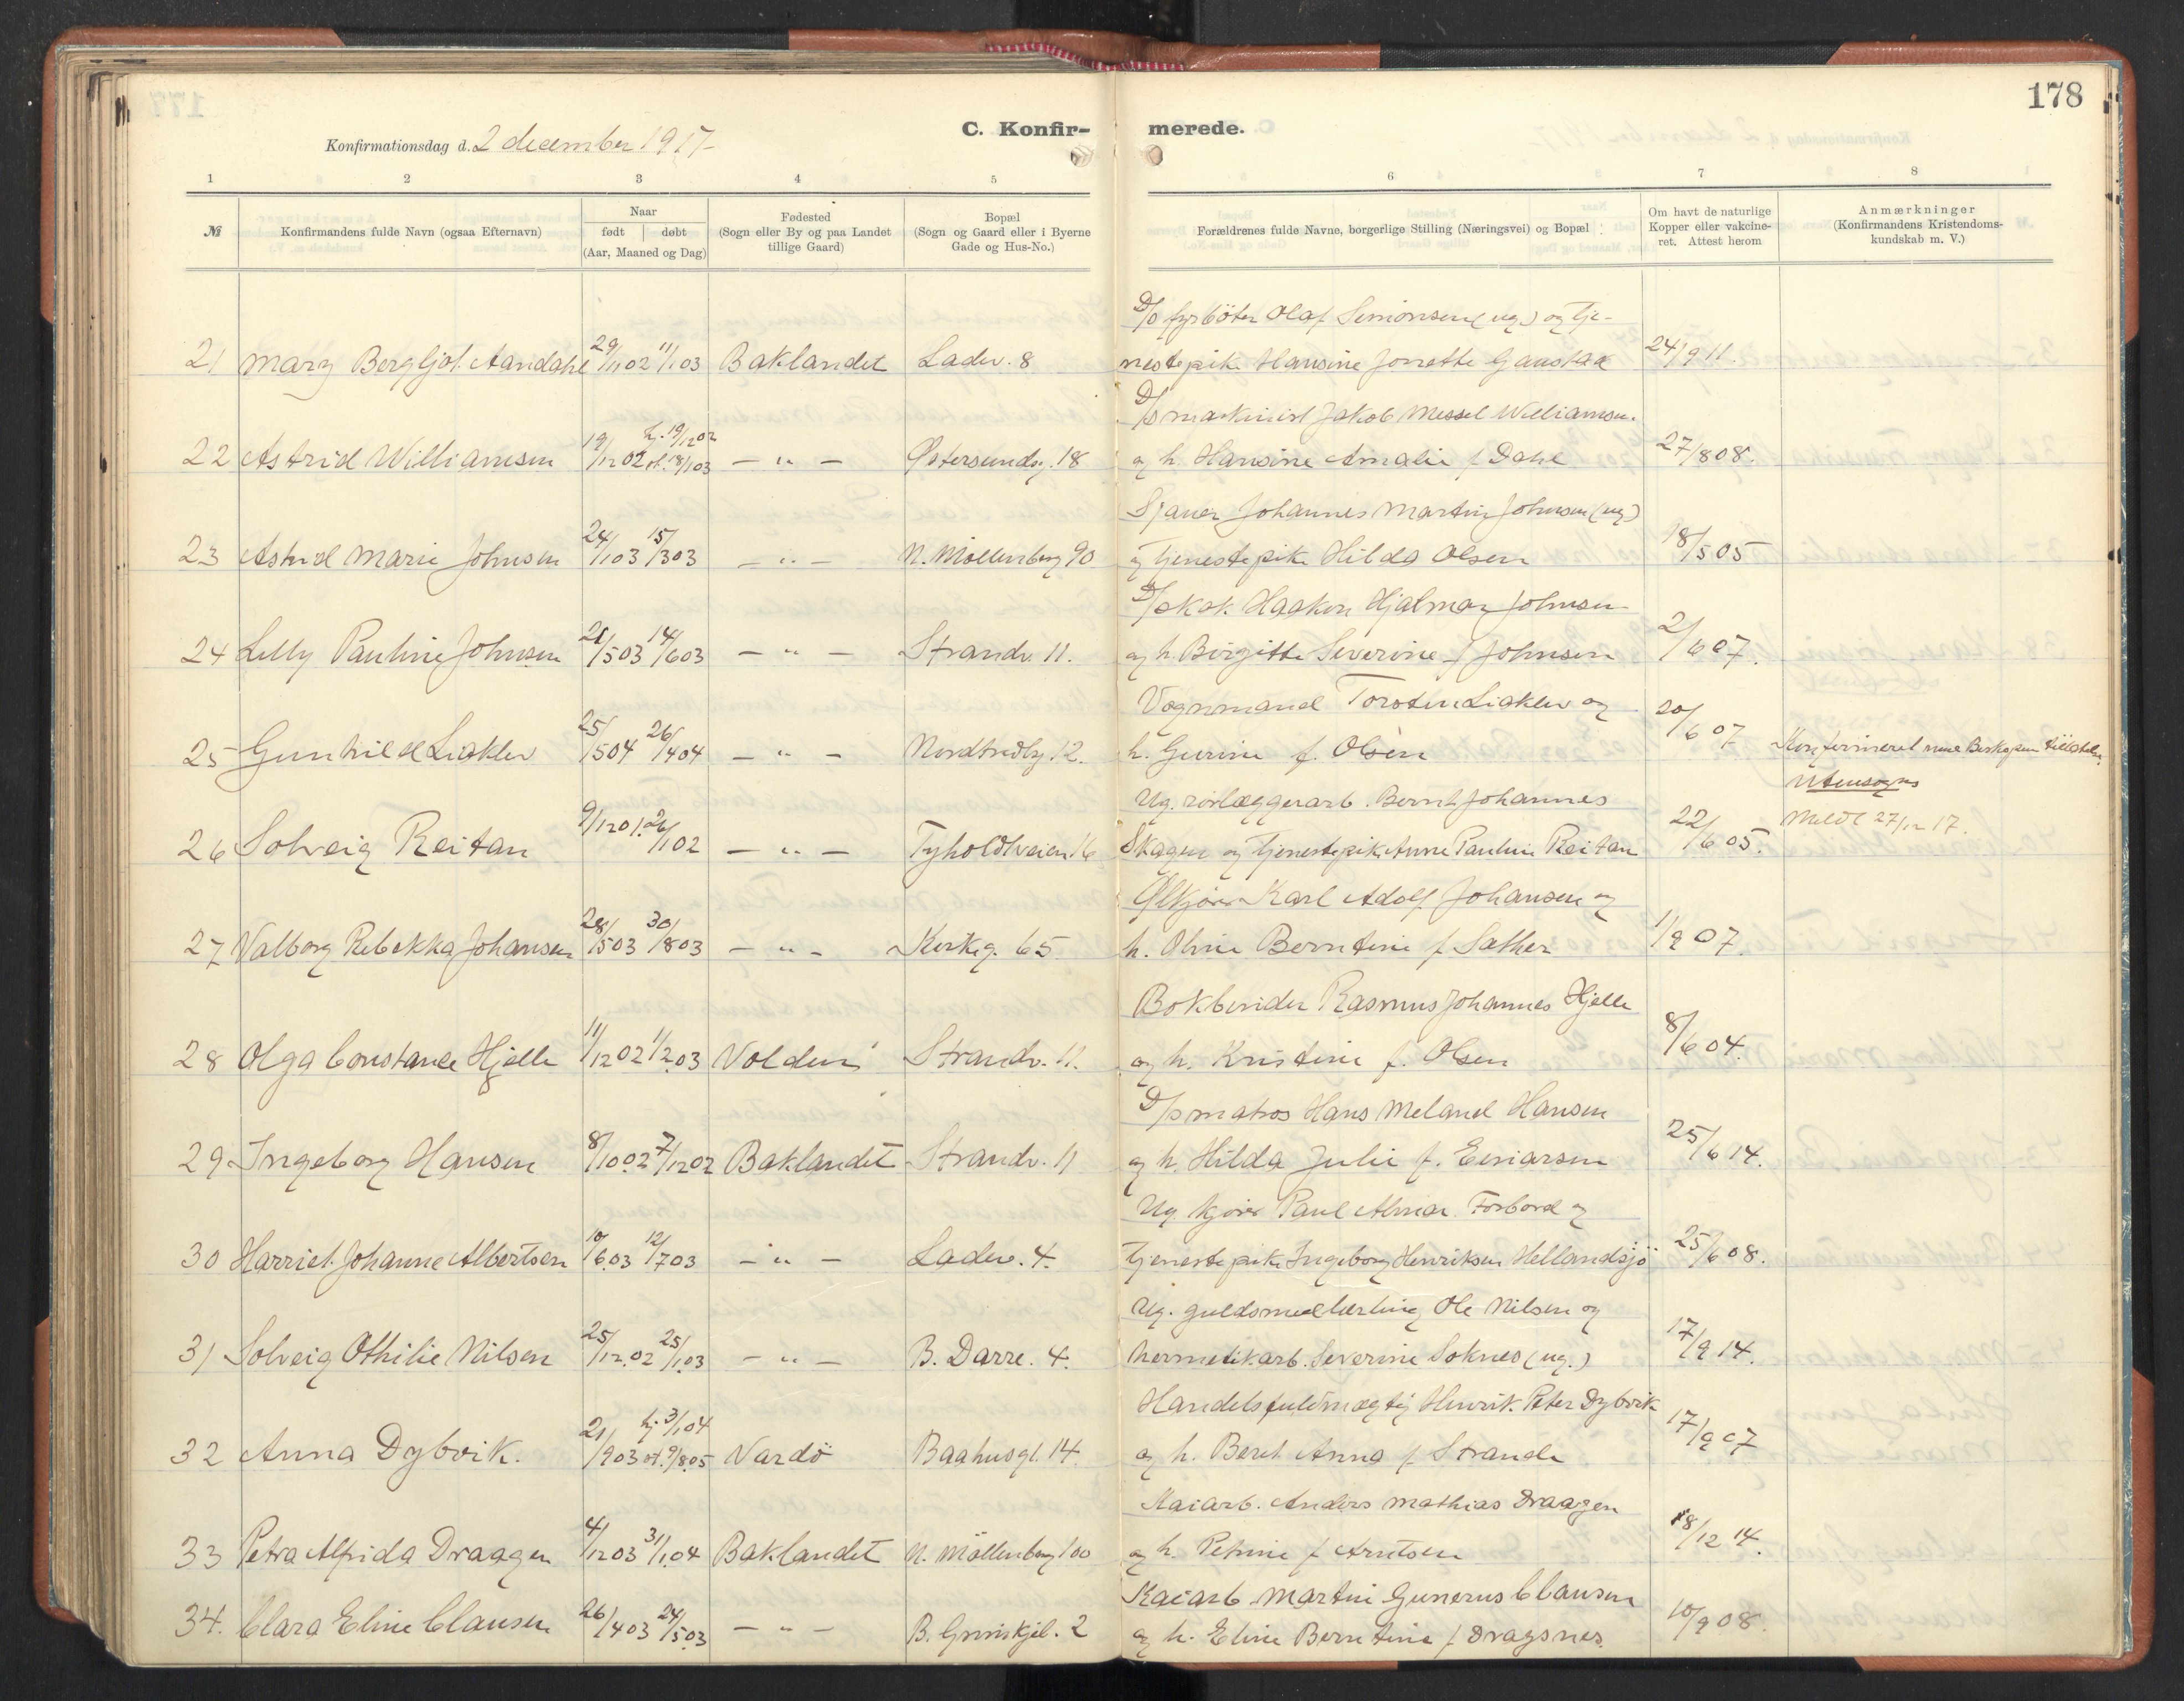 178
C. Konfirmerede.
Konfirmationsdag d. 2 december 1917
1 2 3 4 5 6 7 8
№
Konfirmandens fulde Navn (ogsaa Efternavn)
Naar
født | døbt
(Aar, Maaned og Dag)
Fødested
(Sogn eller By og paa Landet
tillige Gaard)
Bopæl
(Sogn og Gaard eller i Byerne
Gade og Hus-No.)
Forældrenes fulde Navne, borgerlige Stilling (Næringsvei) og Bopæl
Om havt de naturlige
Kopper eller vakcine-
ret. Attest herom
Anmærkninger
(Konfirmandens Kristendoms-
kundskab m. V.)
D/s fyrböter Olaf Simonsen (ug.) og tje-
21 Mary Bergljot Aandahl 29/11 02 11/1 03 Baklandet Ladev. 8 nestepik. Hansine Jonette Gaustad 24/9 11.
D/s maskinist Jakob Messel Williamsen
22 Astrid Williamsen 19/12 02 hj. 19/12 02 st. 18/1 03 – " – Østersundsg. 18 og h. Hansine Amalie f. Dahl 27/8 08.
Sjauer Johannes Martin Johnsen (ug)
23 Astrid Marie Johnsen 24/1 03 15/3 03 – " – N. Møllenberg 90 og tjenestepik. Hilda Olsen 18/5 05
D/s kok Haakon Hjalmar Johnsen
24 Lilly Pauline Johnsen 21/5 03 14/6 03 – " – Strandv. 11. og h. Birgitte Severine f Johnsen 2/6 07.
Vognmand Torsten Liaklev og
25 Gunhild Liaklev 25/5 04 26/4 04 – " – Nordtvedtg. 12. h. Gurine f. Olsen 20/6 07 Konfirmeret med Biskopens tilladelse
Utensogns
Ug. rörlæggerarb. Bernt Johannes
26 Solveig Reitan 9/12 01. 26/1 02 – " – Tyholdtveien 16 Skagen og tjenestepik. Anne Pauline Reitan 22/6 05. Meldt 27/12 17.
Ølkjörer Karl Adolf Johansen og
27 Valborg Rebekka Johansen 28/5 03 30/8 03 – " – Kirkeg. 65 h. Oline Berntine f Sæther 1/9 07.
Bokbinder Rasmus Johannes Hjelle
28 Olga Constance Hjelle 11/12 02 1/2 03 Volden Strandv. 11. og h. Kristine f. Olsen 8/6 04.
D/s matros Hans Meland Hansen
29 Ingeborg Hansen 8/10 02 7/12 02 Baklandet Strandv. 11 og h. Hilda Julie f. Einarsen 25/6 14.
Ug. kjörer Paul Almar Forbord og
30 Harriet Johanne Albertsen 10/6 03 12/7 03 – " – Ladev. 4. tjenestepik. Ingeborg Henriksen Hellandsjö 25/6 08.
Ug. guldsmedlærling Ole Nilsen og
31 Solveig Othilie Nilsen 25/12.02 25/1.03 – " – B. Darre. 4. hermetikarb. Severine Soknes (ug.) 17/9 14.
Handelsfuldmægtig Henrik Peter Dybvik
32 Anna Dybvik. 21/9 03 hj 3/1 04 st. 9/8.05 Vardö Baahusgt. 14. og h. Beret Anna f Strande 17/9 07
Kaiarb. Anders Mathias Draagen
33 Petra Alfrida Draagen 4/12 03 31/1.04 Baklandet N. Møllenberg 100 og h. Petrine f Arntsen 18/12 14.
Kaiarb. Martin Gunerus Clausen
34. Clara Eline Clausen 26/4 03 24/5.03 – " – B. Grinskjel. 2 og h. Eline Berntine f Dragsnes. 10/9 08.